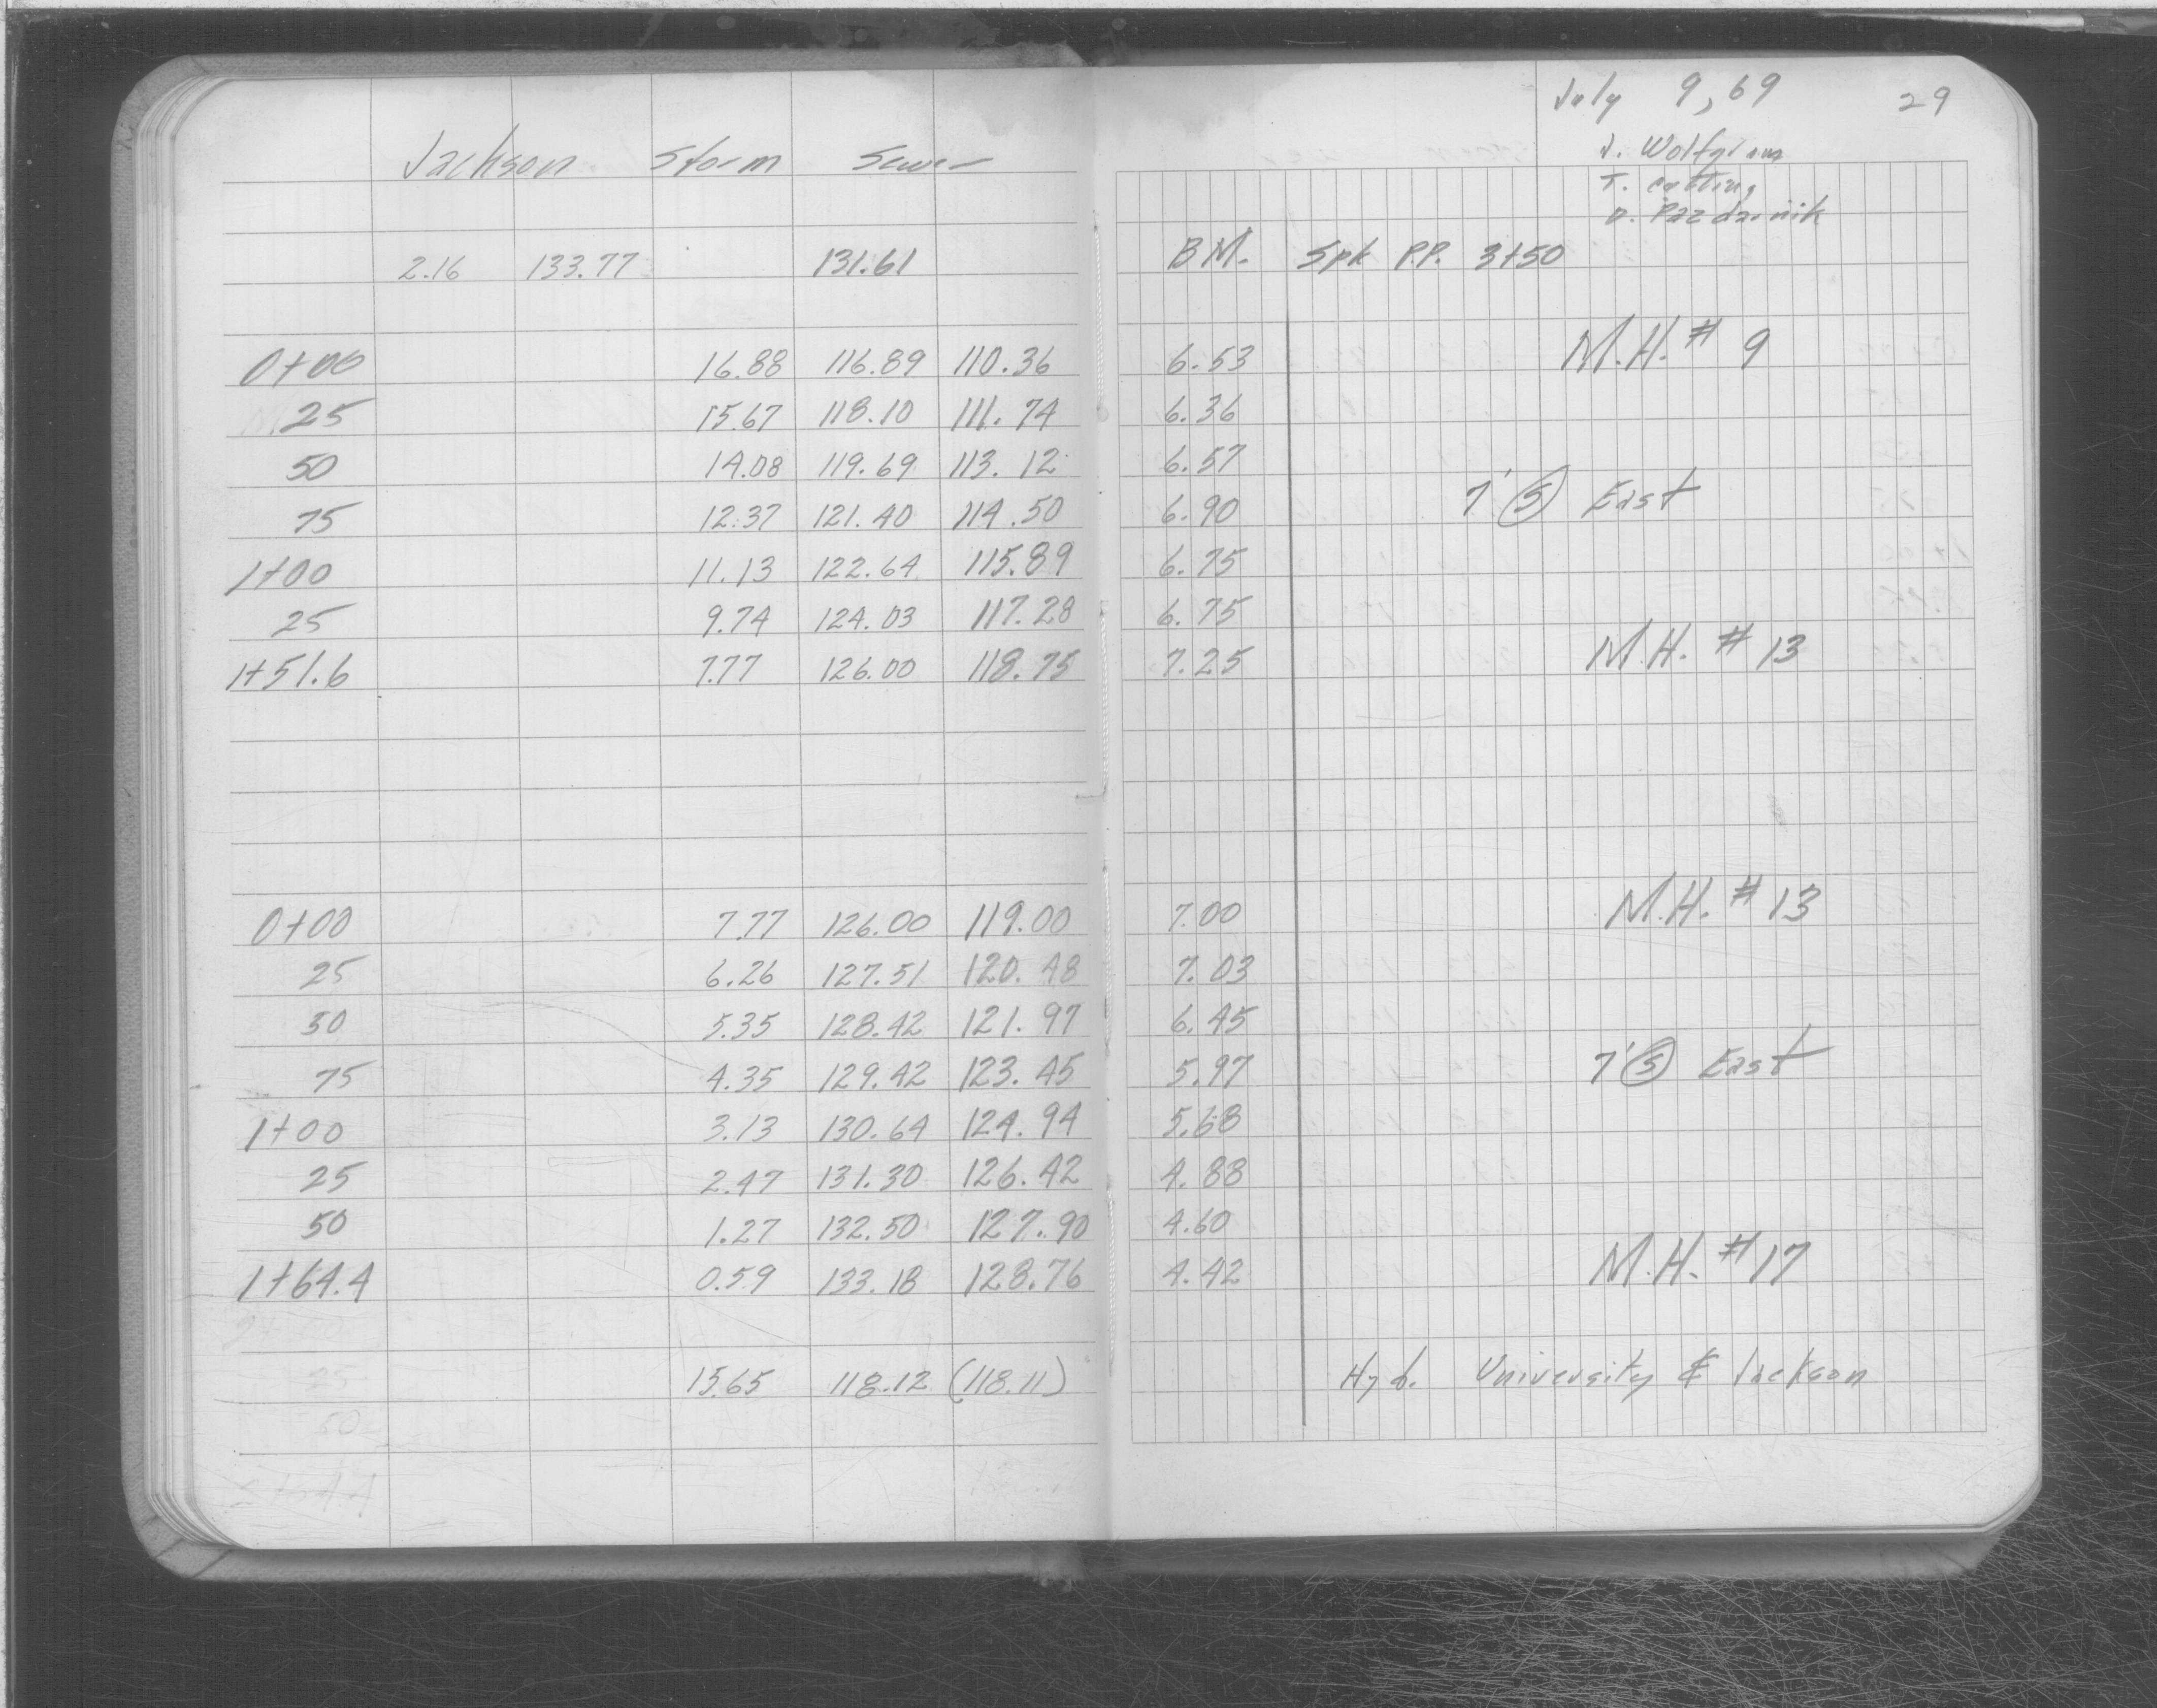 July 9, 69 29
Jackson Storm Sewer
J. Wolfgram
T. Cutting
D. Pazdernik
2.16 133.77 131.61 B.M. Spk P.P. 3+50
0+00 16.88 116.89 110.36 6.53 M.H. # 9
25 15.67 118.10 111.74 6.36
50 14.08 119.69 113.12 6.57
75 12.37 121.40 114.50 6.90 7' (S) East
1+00 11.13 122.64 115.89 6.75
25 9.74 124.03 117.28 6.75
1+51.6 7.77 126.00 118.75 7.25 M.H. # 13
0+00 7.77 126.00 119.00 7.00 M.H. # 13
25 6.26 127.51 120.48 7.03
50 5.35 128.42 121.97 6.45
75 4.35 129.42 123.45 5.97 7' (S) East
1+00 3.13 130.64 124.94 5.68
25 2.47 131.30 126.42 4.88
50 1.27 132.50 127.90 4.60
1+64.4 0.59 133.18 128.76 4.42 M.H. # 17
15.65 118.12 (118.11) Hyd. University & Jackson